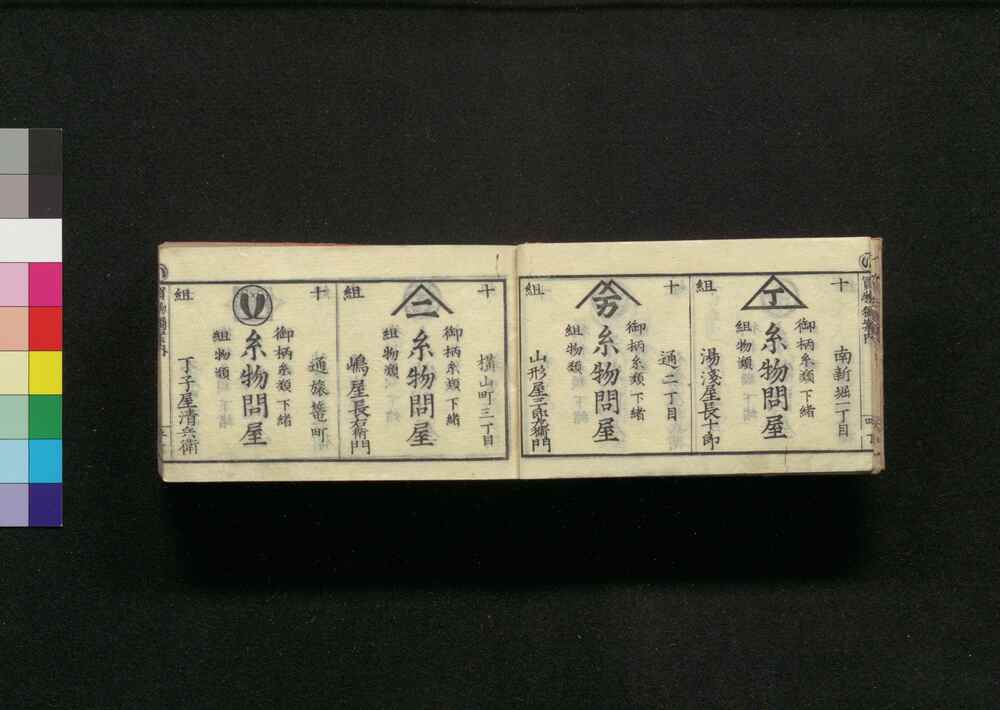 十
組
丁
南新堀一丁目
御柄糸類 下緒
糸物問屋
組物類
湯淺屋長十郎
十
組
通二丁目
御柄糸類 下緒
糸物問屋
組物類
山形屋三郎左衛門
十
組
二
横山町三丁目
御柄糸類 下緒
糸物問屋
組物類
嶋屋長右衛門
十
組
通旅篭町
御柄糸類 下緒
糸物問屋
組物類
丁子屋清兵衛